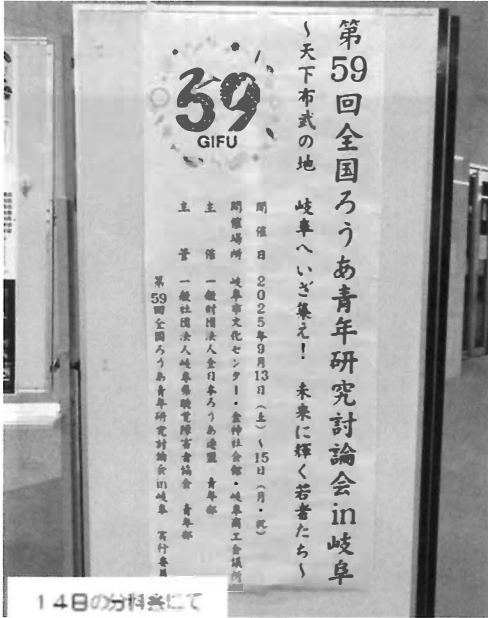 第59回全国ろうあ青年研究討論会in岐阜
～天下布武の地 岐阜へいざ集え! 未来に輝く若者たち～
59
GIFU
開催日 2025年9月13日(土)～15日(月・祝)
開催場所 岐阜市文化センター・金神社会館・岐阜商工会議所
主催 一般財団法人全日本ろうあ連盟 青年部
主管 一般社団法人岐阜県聴覚障害者協会 青年部
第59回全国ろうあ青年研究討論会in岐阜 実行委員
14日の分科会にて